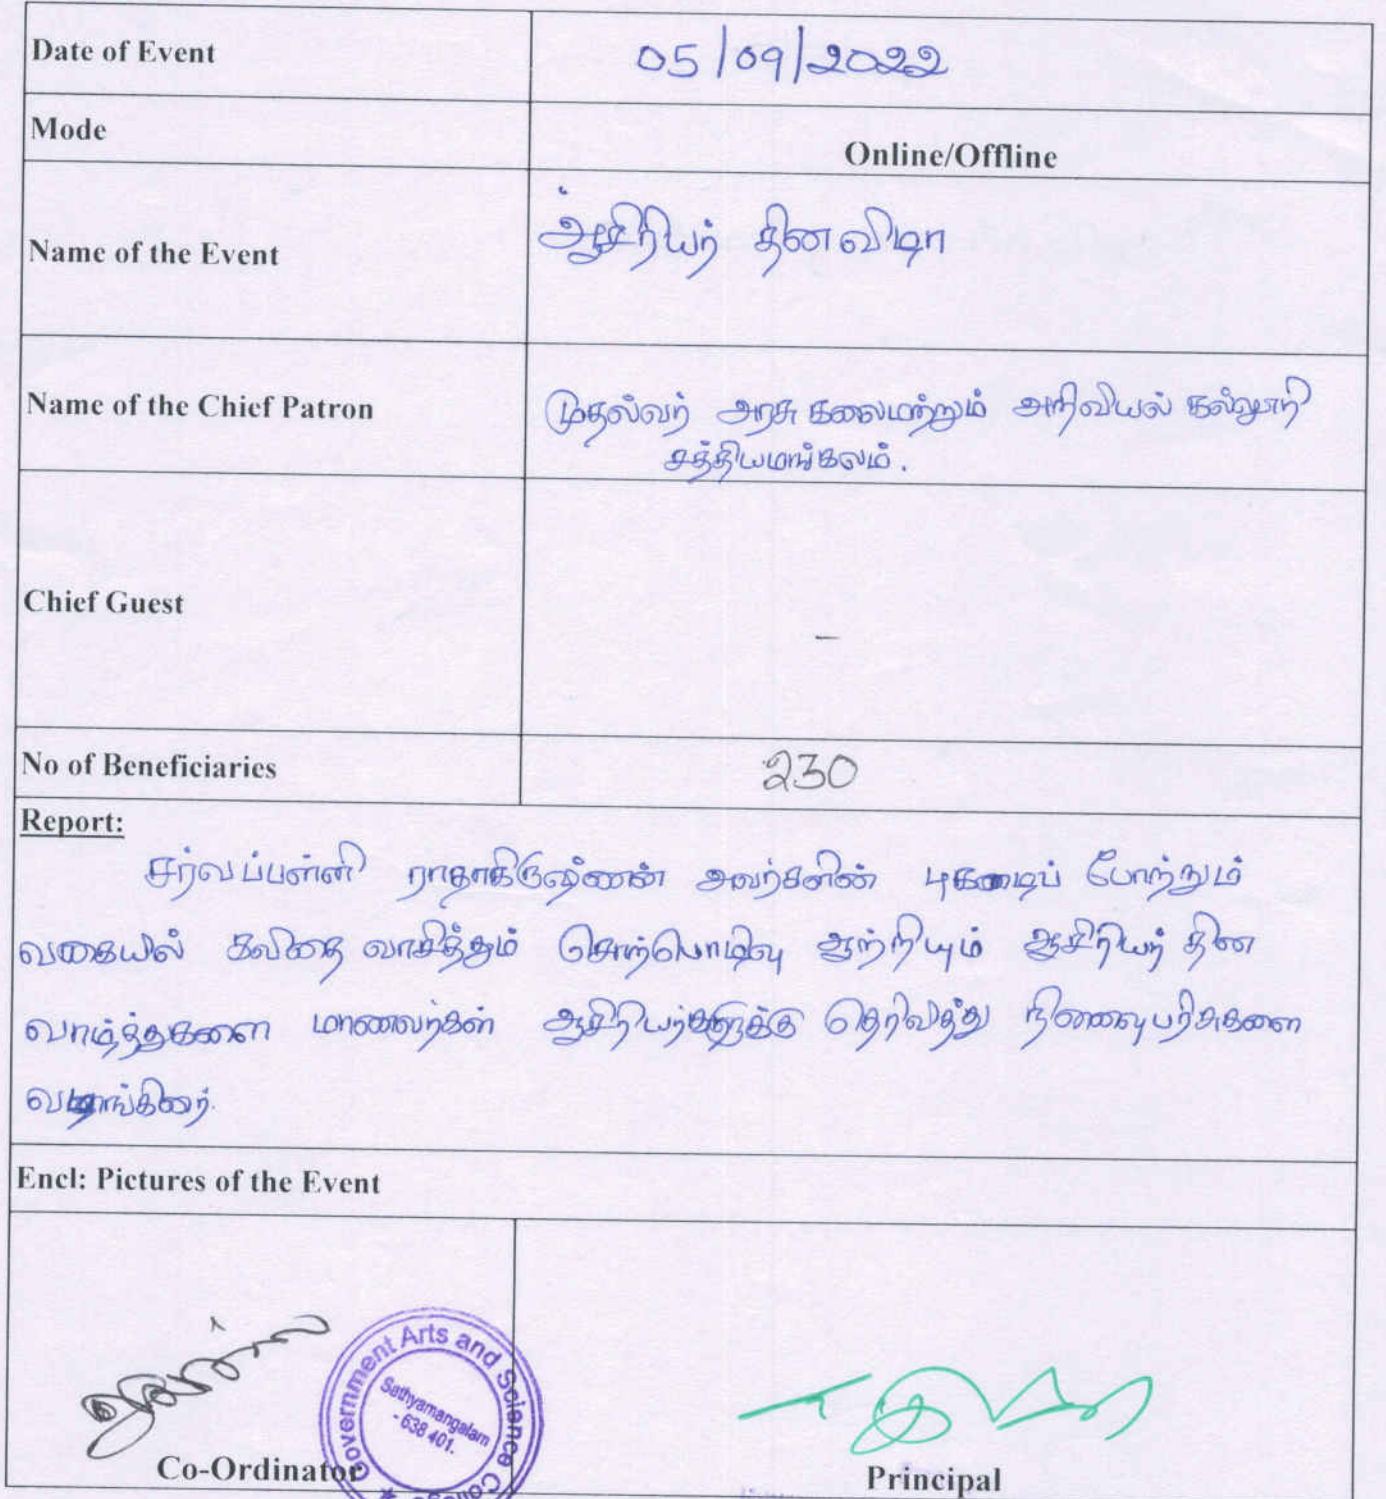 Date of Event 05/09/2022
Mode Online/Offline
Name of the Event ஆசிரியர் தினவிழா
Name of the Chief Patron முதல்வர் அரசு கலைமற்றும் அறிவியல் கல்லூரி
சத்தியமங்கலம்.
Chief Guest -
No of Beneficiaries 230
Report:
சர்வப்பள்ளி ராதாகிருஷ்ணன் அவர்களின் புகழைப் போற்றும்
வகையில் கவிதை வாசித்தும் சொற்பொழிவு ஆற்றியும் ஆசிரியர் தின
வாழ்த்துகளை மாணவர்கள் ஆசிரியர்களுக்கு தெரிவித்து நினைவுபரிசுகளை
வழங்கினர்.
Encl: Pictures of the Event
Government Arts and Science
Sathyamangalam
- 638 401.
Co-Ordinator Principal